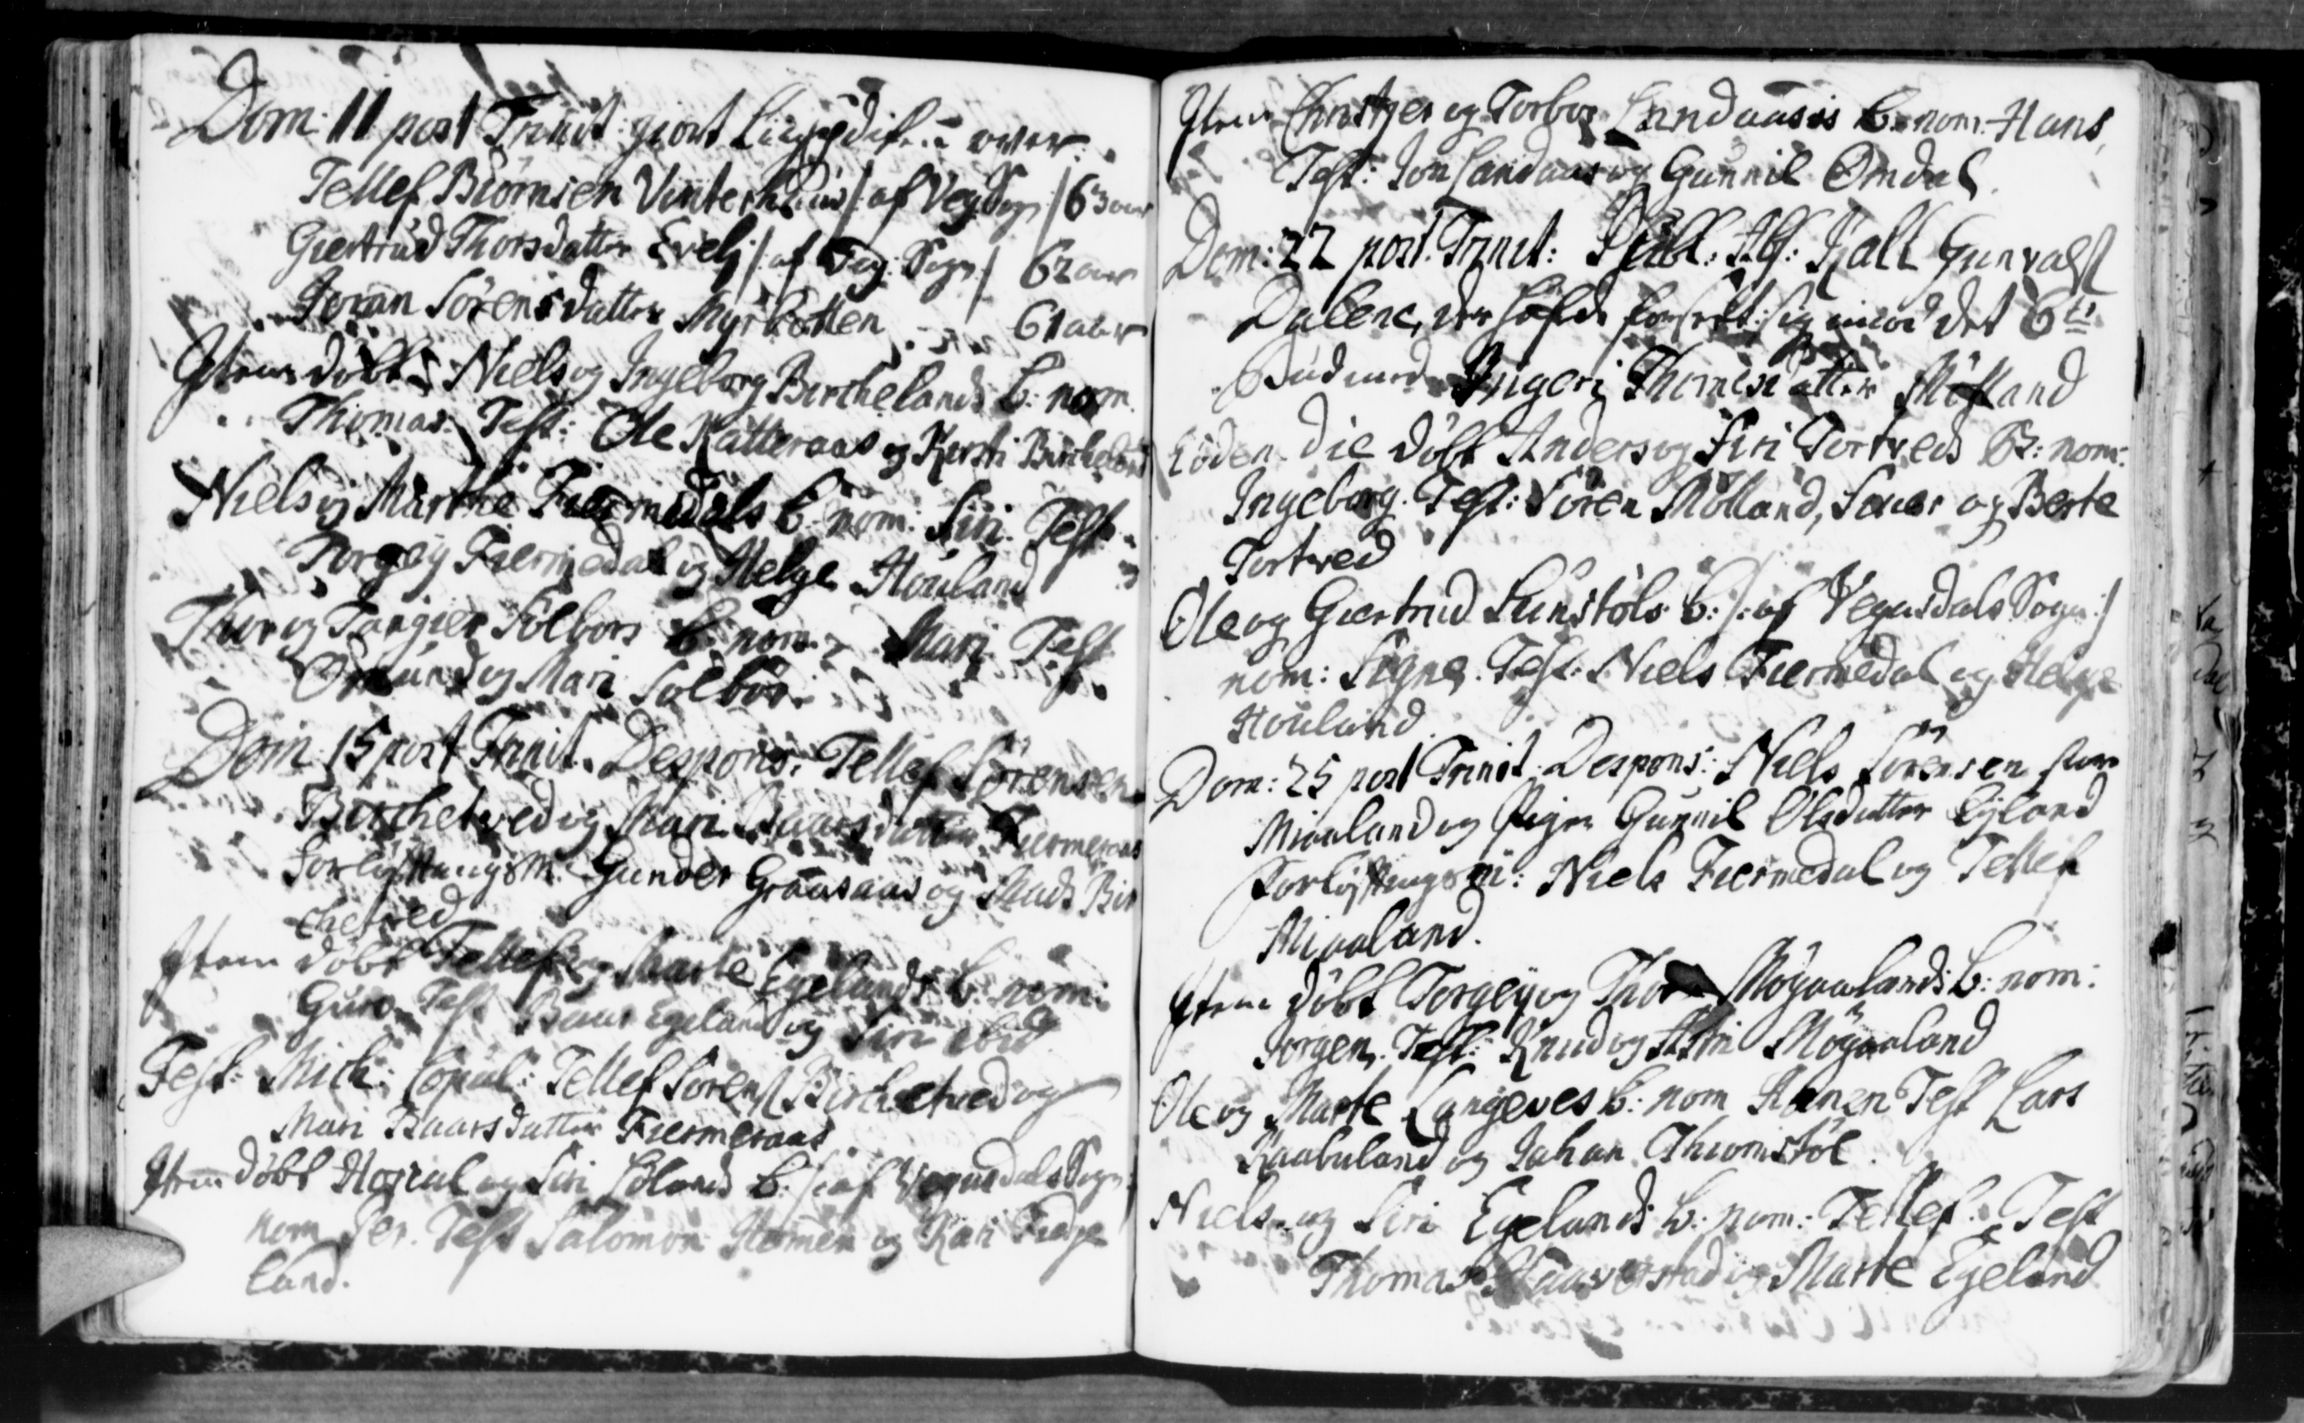 Dom: 11 post Trinit: giort Liigprædiken over
Tellef Biörnsen Vinterhuus /: af Veg: Sogn :/ 63 aar
Giertrud Thorsdatter Evelj /: af Veg: Sogn :/ 62 aar
Joran Sörensdatter Myrbotten 61 aar
Item döbt Niels og Ingeborg Birchelands b: nom.
Thomas. Test: Ole Katteraas og Kirsti Bircheland
Niels og Marthe Fiermedals b: nom: Siri. Test:
Torgey Fiermedal og Helge Houland
Thor og Tangier Sölbörs b: nom: Mari Test
Omund og Mari Solbör.
Dom: 15 post Trinit. Despons: Tellef Sörensen
Birchetved og Mari Baarsdatter Fiermeraas
Forlystningsm. Gunder Graasaas og Mads Bir
chetved
Item döbt Tellef og Marte Egelands b: nom:
Guro. Test Baar Egeland og Siri ibid
Fest: Mich: Copul: Tellef Sörens: Birchetved og
Mari Baarsdatter Fiermeraas
Item döbt og Siri b: /: af Vegusdals Sogn
nom Per. Test Salomon og Kari Fidje
land.
Item Christjer og Torbor Landaasis b: nom. Hans,
Test: Jon Landaas og Gunnil Omdal.
Dom: 22 post Trinit: Publ: Abs: Kall Gunvalst
Dalene, der hafde forseet sig imod det 6te
Bud med Thomesdatter Möland
Eöden. Die döbt Anders og Siri Tortveds B: nom:
Ingeborg. Test: Sören Mölland, og Berte
Tortved
Ole og Giertrud Sunstöls b: /: af Vegusdals Sogn :/
nom: Signe. Test: Niels Fiermedal og Helge
Houland
Dom: 25 post Trinit: Despons: Niels Sörensen
Miaaland og Pigen Gunnil Olsdatter Eyland
Forlystningsm: Niels Fiermedal og Tellef
Miaaland.
Item döbt Torgey og Mögaalands b: nom:
Jorgen. Test: Knud og Mögaaland
Ole og Marte Langeves b: nom Test Lars
Raabuland og Johan Thiomstöl.
Niels og Siri Egelands b: nom: Tellef. Test
Thomas Haaverstad og Marte Egeland